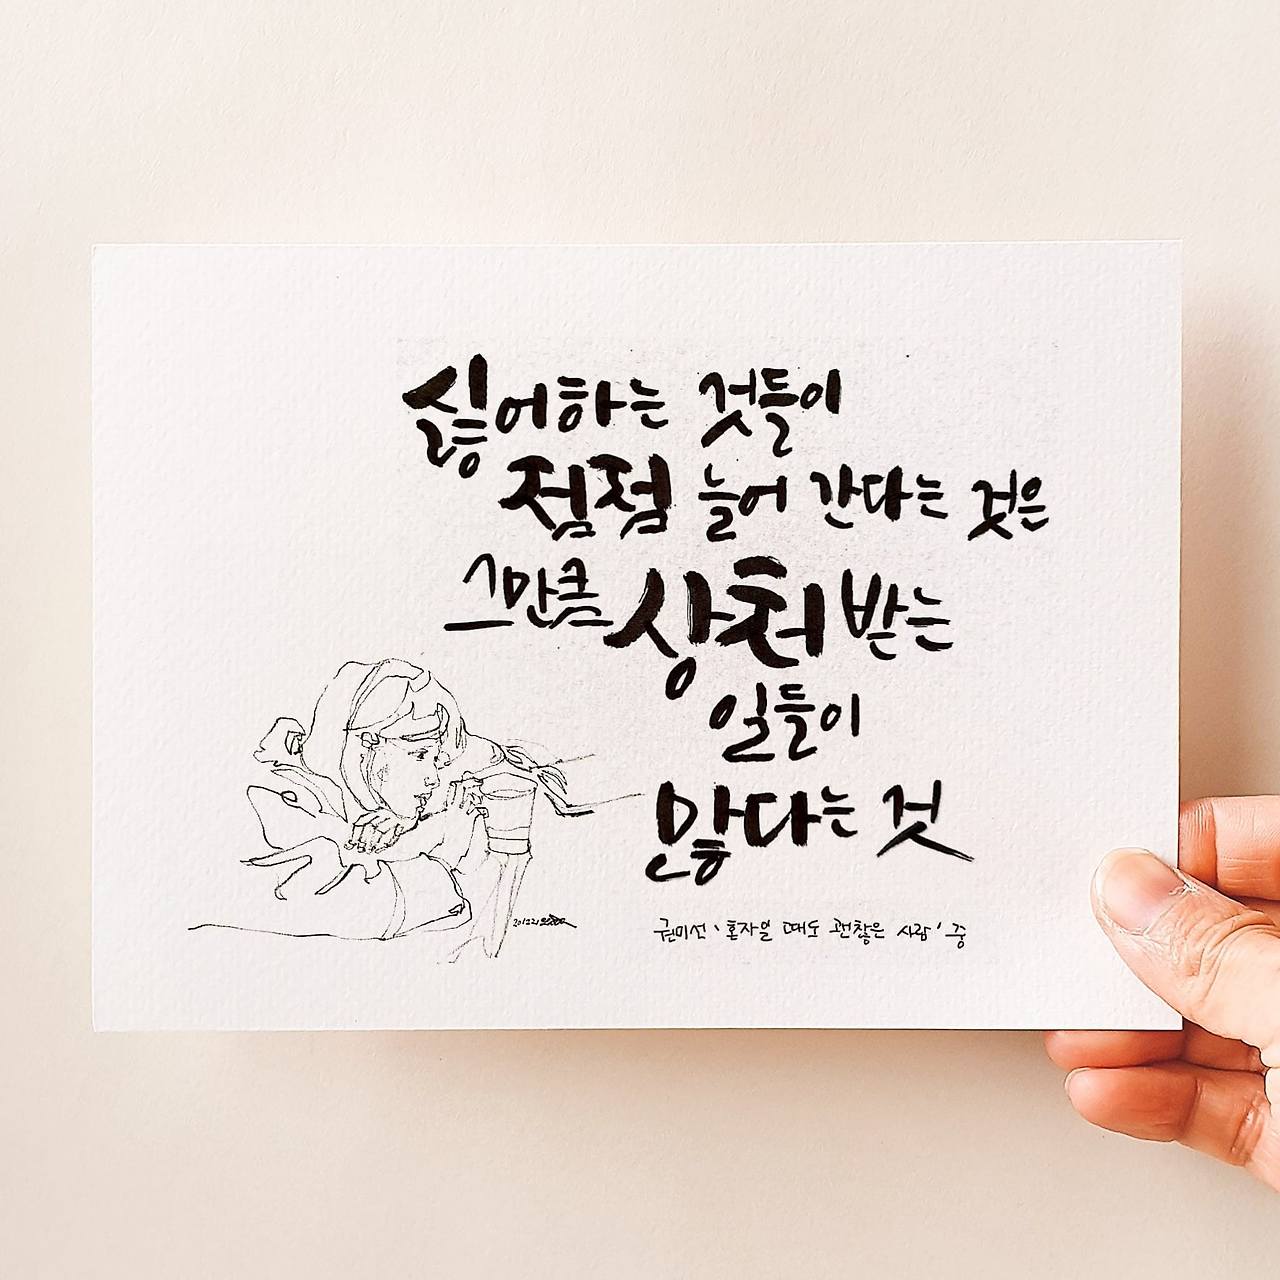 싫어하는 것들이
점점 늘어 간다는 것은
그만큼 상처 받는
일들이
많다는 것
권미선 '혼자일 때도 괜찮은 사람' 중